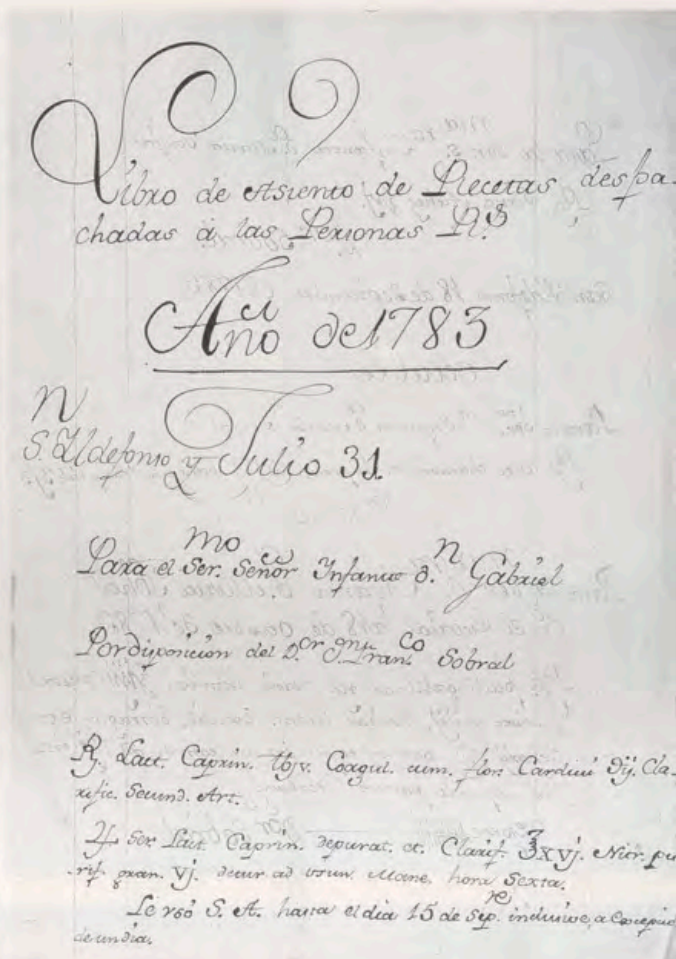 Libro de Asiento de Recetas despa-
chadas á las Personas R.s
Año de 1783
S.n Ildefonso y Julio 31.
Para el Ser.mo Señor Infante D.n Gabriel
Por disposicion del D.or Fran.co Sobral
R. Lact. Caprin. tbjv. Coagul. cum. flor. Cardui ʒij. Cla-
rific. Secund. Art.
Ser. Lact. Caprin. depurat. et. Clarif. ℥xvj. Nitr. pu
rif. gran. vj. detur ad usum. Mane. hora Sexta.
Le usó S. A. hasta el dia 15 de Sep.re inclusive, a excepcio
de un dia.